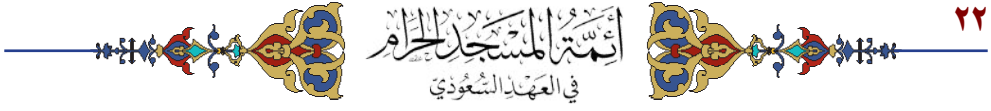 ٢٢
أَئِمَّةُ المَسْجِدِ الحَرَامِ
في العَهْدِ السُّعُودِيِّ